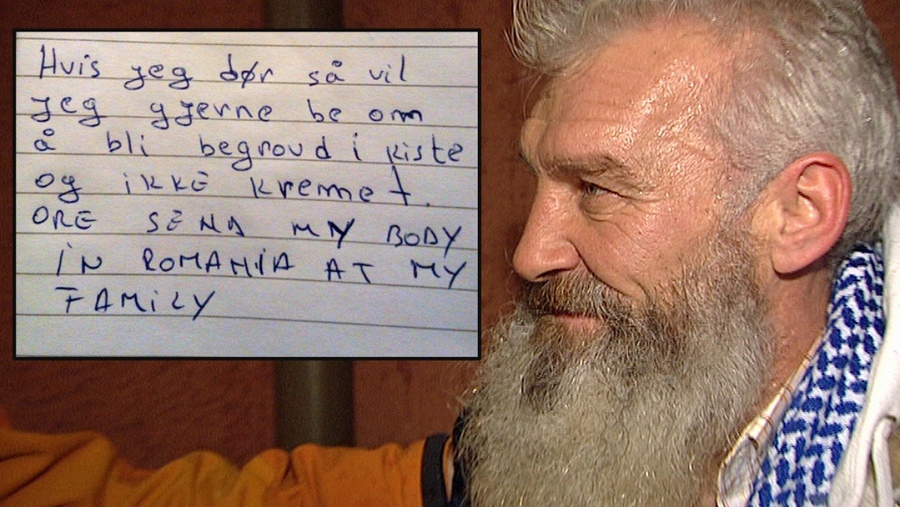 Hvis jeg dør så vil
jeg gjerne be om
å bli begravd i kiste
og iKKE kremet.
ORE SEND MY BODY
IN ROMANIA AT MY
FAMILY